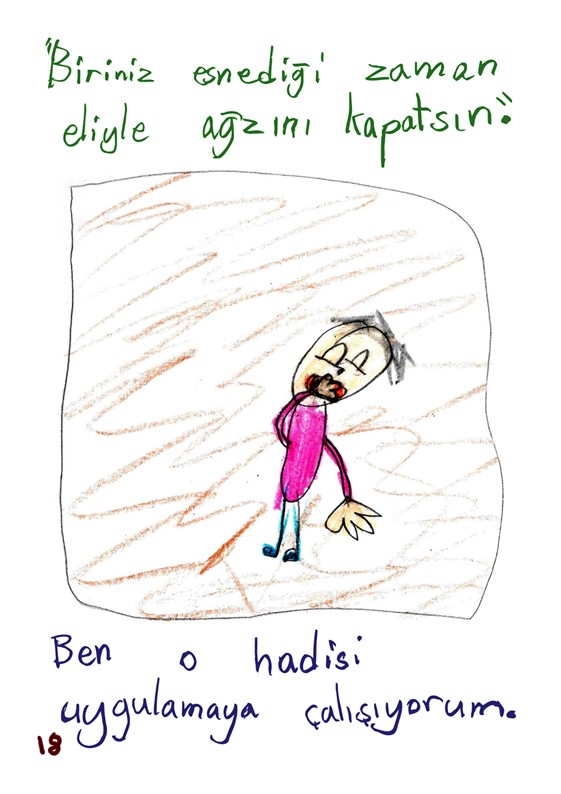 "Biriniz esnediği zaman
eliyle ağzını kapatsın."
Ben o hadisi
uygulamaya çalışıyorum.
18